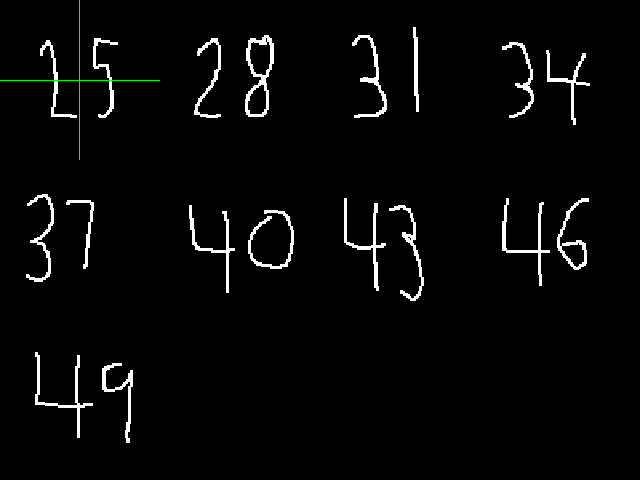 25 28 31 34
37 40 43 46
49